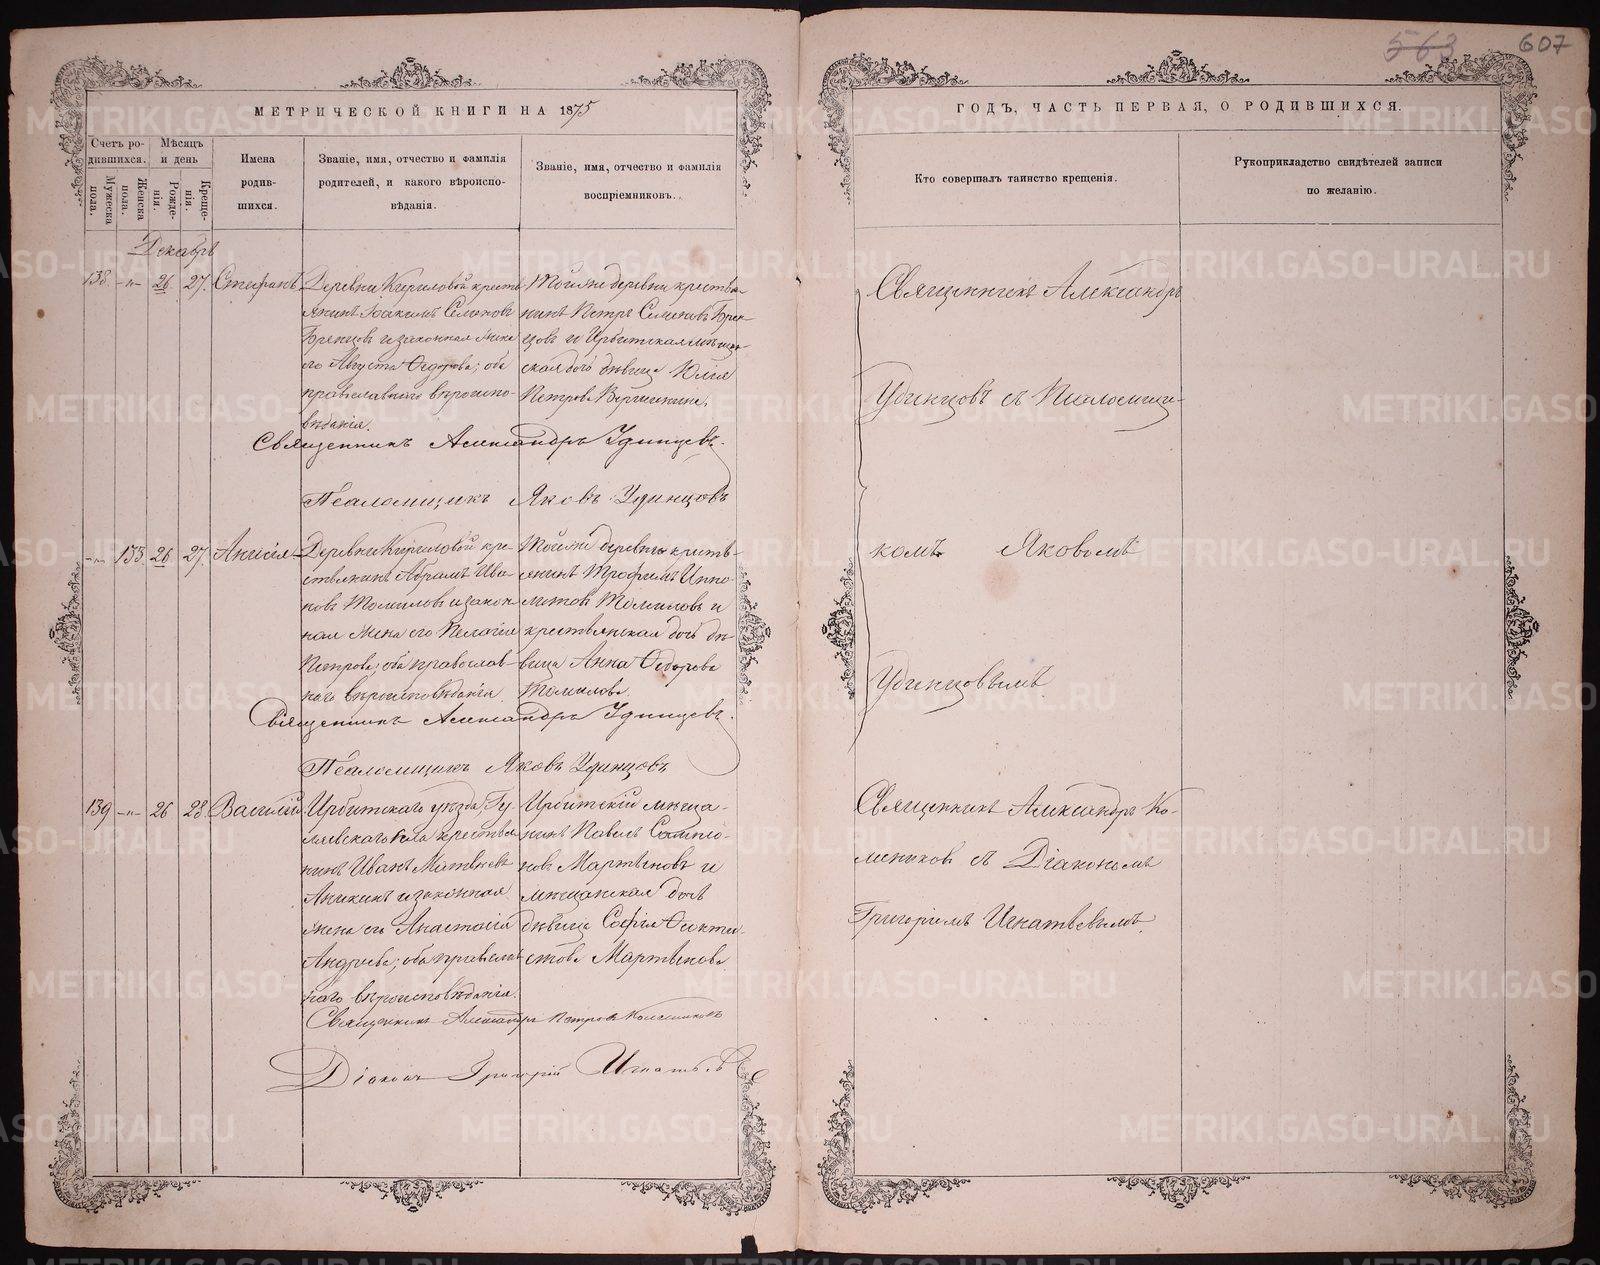 563 607
МЕТРИЧЕСКОЙ КНИГИ НА 1875
ГОДЪ, ЧАСТЬ ПЕРВАЯ, О РОДИВШИХСЯ.
Счетъ ро-
дившихся.
Мужеска
пола.
Женска
пола.
Мѣсяцъ
и день
Рожде-
нія.
Креще-
нія.
Имена
родив-
шихся.
Званіе, имя, отчество и фамилія
родителей, и какого вѣроиспо-
вѣданія.
Званіе, имя, отчество и фамилія
воспріемниковъ.
Кто совершалъ таинство крещенія.
Рукоприкладство свидѣтелей записи
по желанію.
Декабрь
138. -"- 26 27. Стефанъ
Деревни Кириловой кресть
янинъ Іоакимъ Семеновъ
Бренцовъ и законная жена
его Августа Ѳедорова; оба
православнаго вѣроиспо-
вѣданія.
Тойже деревни крестья-
нинъ Петръ Семеновъ Брен-
цовъ и Ирбитская мѣщан-
ская дочь дѣвица Юлія
Петрова
Священникъ Александръ Удинцевъ.
Псаломщикъ Яковъ Удинцовъ
-"- 133 26 27. Анисія
Деревни Кириловой кре-
стьянинъ Абрамъ Ива-
новъ Томиловъ и закон-
ная жена его Пелагія
Петрова; оба православ-
наго вѣроисповѣданія
Тойже деревни кресть-
янинъ Трофимъ Иппо-
литовъ Томиловъ и
крестьянская дочь дѣ-
вица Анна Ѳедорова
Томилова.
Священникъ Александръ Удинцевъ.
Псаломщикъ Яковъ Удинцовъ
139 -"- 26 28 Василій
Ирбитскаго уѣзда Гу-
ляевскаго села крестья
нинъ Иванъ Матвѣевъ
Аникинъ и законная
жена его Анастасія
Андреева; оба православ
наго вѣроисповѣданія.
Ирбитскій мѣща-
нинъ Павелъ
Мартьяновъ и
мѣщанская дочь
дѣвица Софія Ѳеокти-
стова Мартьянова
Священникъ Александръ Петровъ Колесниковъ
Діаконъ Григорій Игнатьевъ
Священникъ Александръ
Удинцовъ съ Псаломщи-
комъ Яковомъ
Удинцовымъ.
Священникъ Александръ Ко-
лесниковъ съ Діакономъ
Григоріемъ Игнатьевымъ.
METRIKI.GASO-URAL.RU